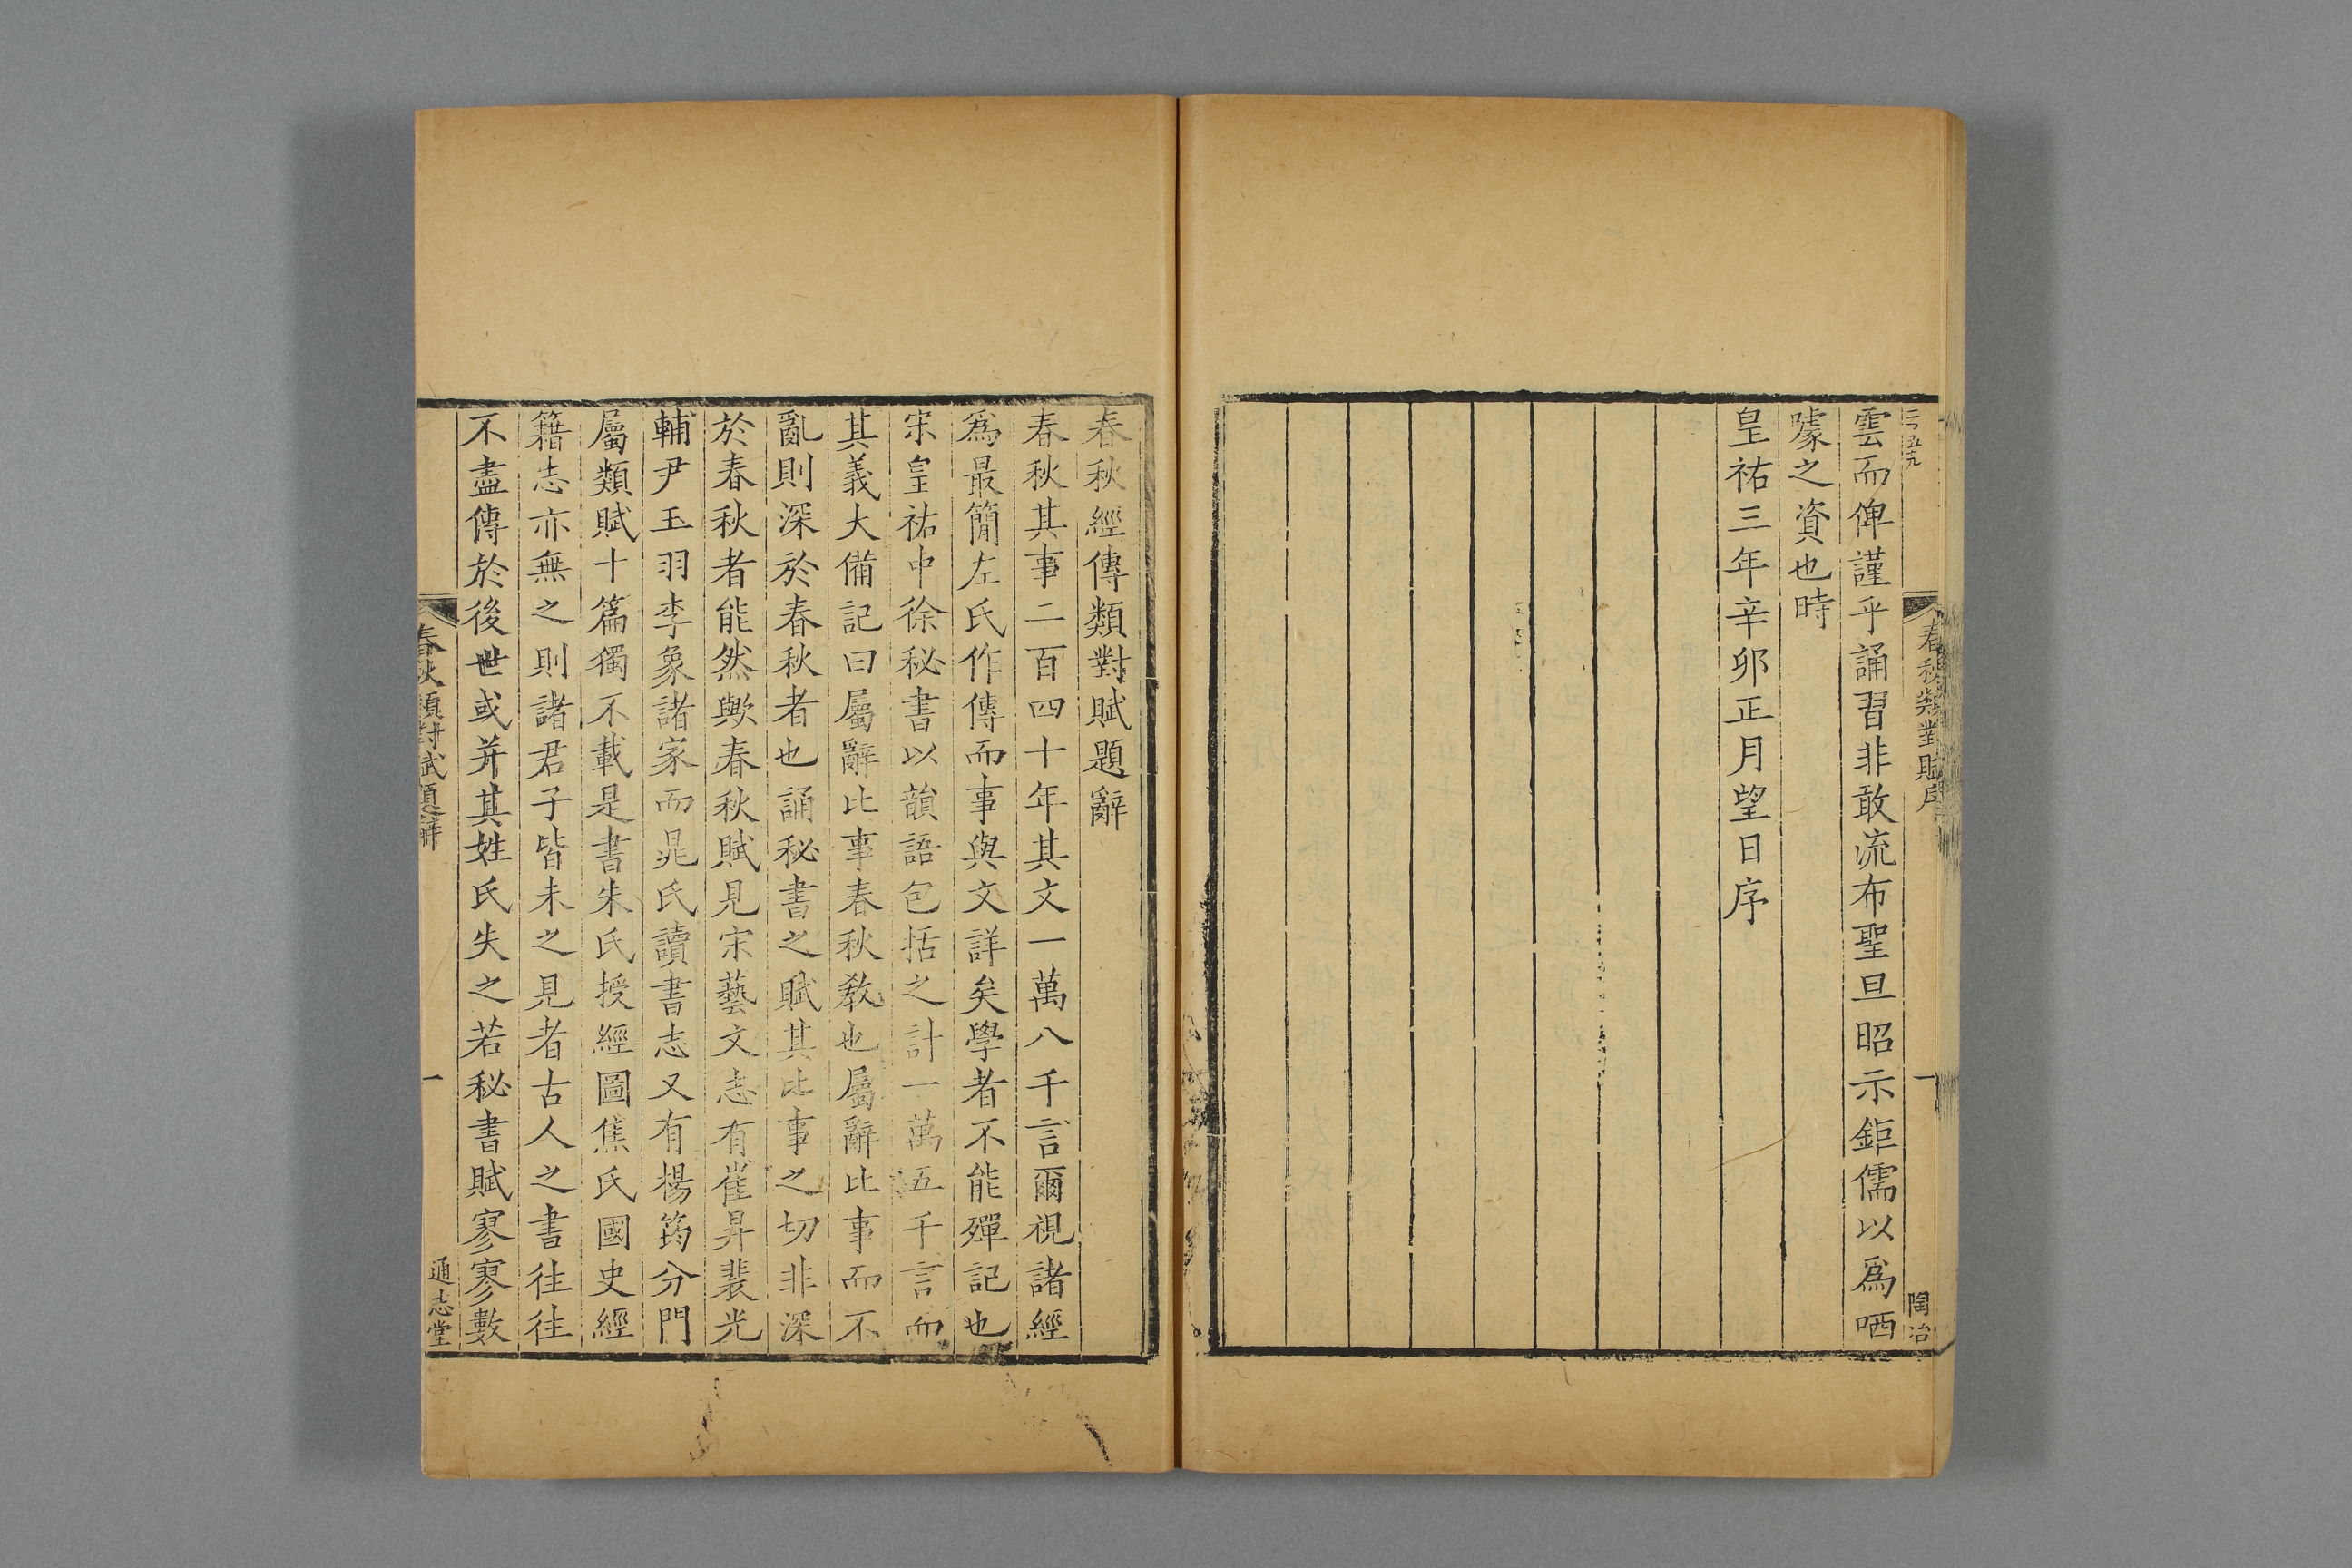 春秋類對賦序
一
陶冶
雲而俾謹乎誦習非敢流布聖旦昭示鉅儒以爲哂
噱之資也時
皇祐三年辛卯正月望日序
春秋經傳類對賦題辭
春秋其事二百四十年其文一萬八千言爾視諸經
爲最簡左氏作傳而事與文詳矣學者不能殫記也
宋皇祐中徐秘書以韻語包括之計一萬五千言而
其義大備記曰屬辭比事春秋敎也屬辭比事而不
亂則深於春秋者也誦秘書之賦其比事之切非深
於春秋者能然歟春秋賦見宋藝文志有崔昇裴光
輔尹玉羽李象諸家而晁氏讀書志又有楊筠分門
屬類賦十篇獨不載是書朱氏授經圖焦氏國史經
籍志亦無之則諸君子皆未之見者古人之書往往
不盡傳於後世或并其姓氏失之若秘書賦寥寥數
春秋類對賦題辭
一
通志堂